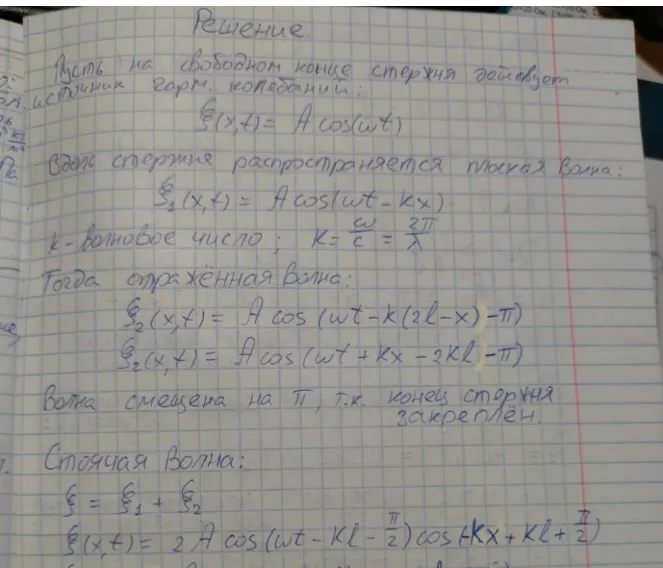 Решение
Пусть на свободном конце стержня действует
источник гарм. колебаний:
ξ(x,t) = A cos(ωt)
Вдоль стержня распространяется плоская волна:
ξ₁(x,t) = A cos(ωt - kx)
k - волновое число; k = ω/c = 2π/λ
Тогда отражённая волна:
ξ₂(x,t) = A cos (ωt - k(2l - x) - π)
ξ₂(x,t) = A cos (ωt + kx - 2kl - π)
Волна смещена на π, т.к. конец стержня
закреплён.
Стоячая волна:
ξ = ξ₁ + ξ₂
ξ(x,t) = 2 A cos (ωt - kl - π/2) cos (-kx + kl + π/2)